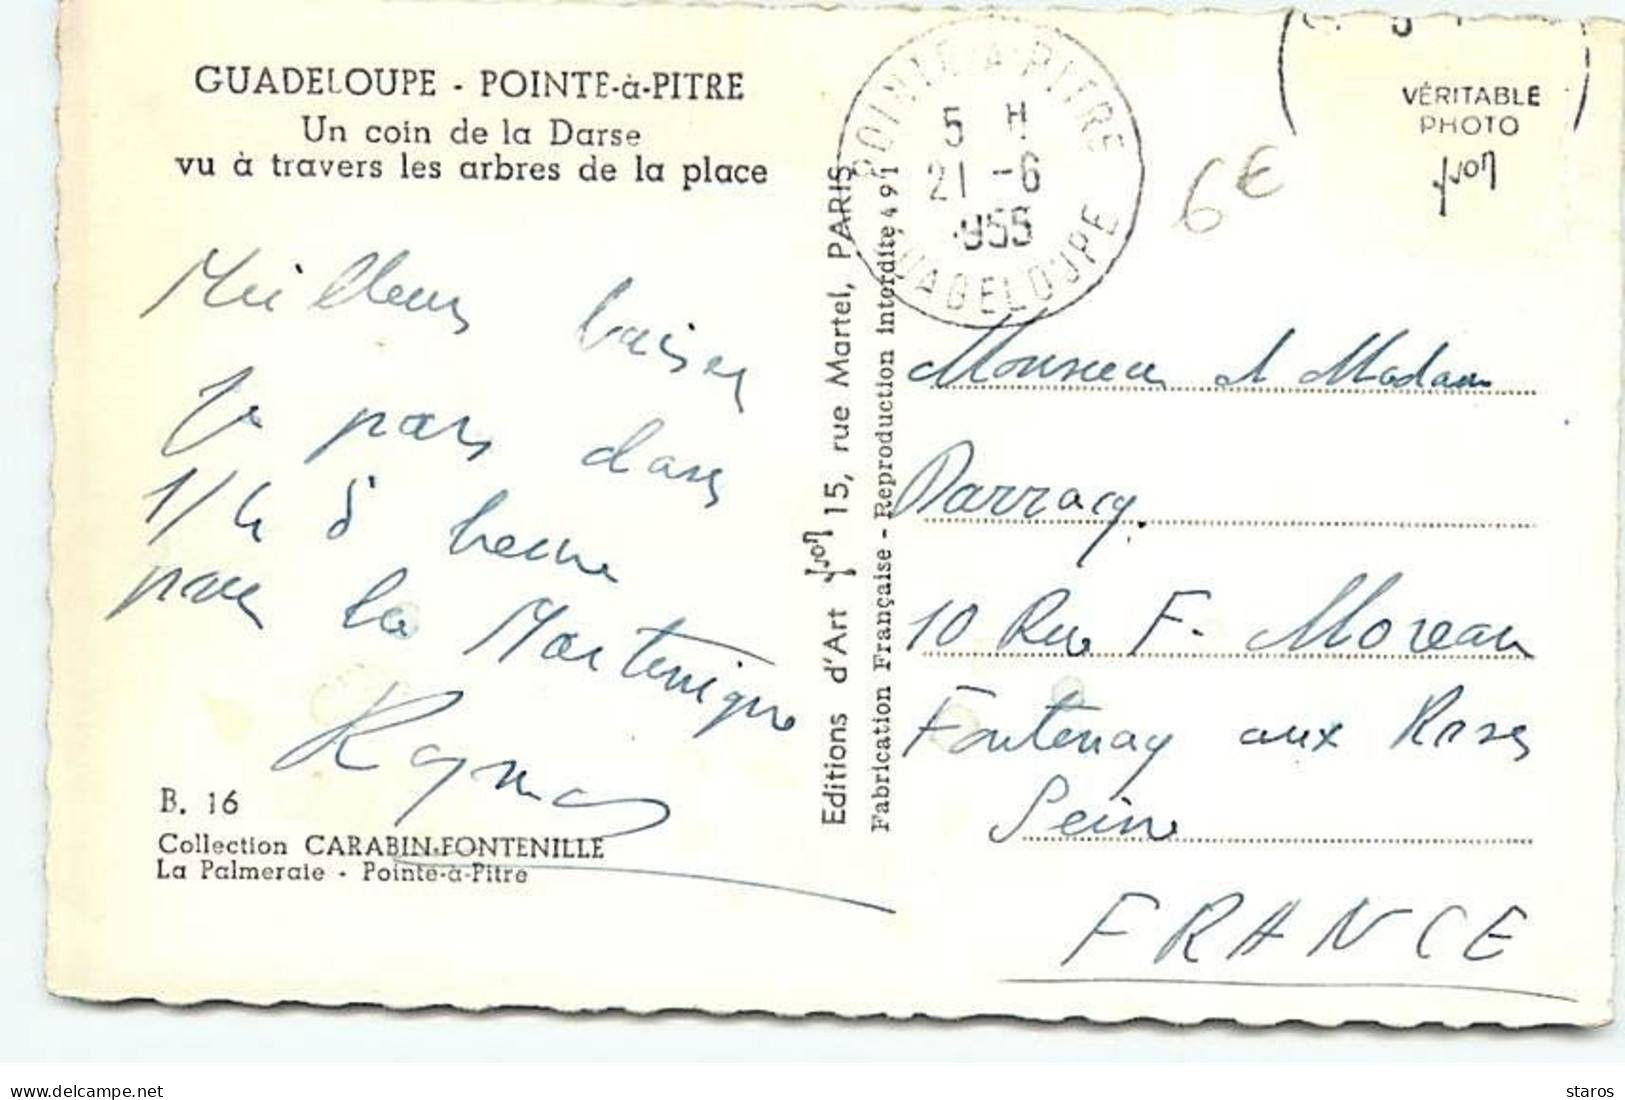 GUADELOUPE - POINTE-à-PITRE
Un coin de la Darse
vu à travers les arbres de la place
Meilleurs baisers
Je pars dans
1/4 d'heure
pour la Martinique
B. 16
Collection CARABIN-FONTENILLE
La Palmeraie - Pointe-à-Pitre
Editions d'Art yvon 15, rue Martel, PARIS
Fabrication Française - Reproduction Interdite 491
POINTE A PITRE
5 H
21 -6
1955
GUADELOUPE
6€
VÉRITABLE
PHOTO
yvon
Monsieur et Madame
Darracq.
10 Rue F. Moreau
Fontenay aux Roses
Seine
FRANCE
delcampe.net
staros